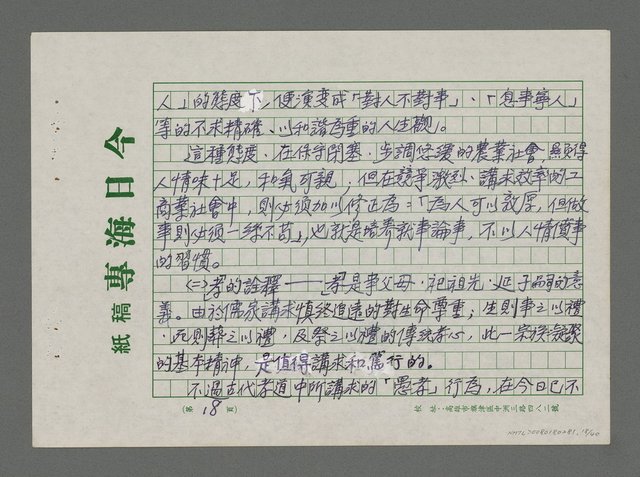 人」的態度下，便演变成「對人不對事」、「息事寧人」
等的不求精確、以和諧為重的人生觀。
這種態度、在保守閉塞、步調悠緩的農業社會，顯得
人情味十足，和氣可親，但在競爭激烈、講求效率的工
商業社會中，則必須加以修正為：「為人可以敦厚，但做
事則必須一絲不苟」，也就是培養就事論事，不以人情僨事
的習慣。
㈡孝的詮釋——孝是事父母、祀祖先、延子嗣的意
義。由於儒家講求慎終追遠的對生命尊重；生則事之以禮
、死則葬之以禮，及祭之以禮的傳統孝心，此一宗族凝聚
的基本精神，是值得講求和篤行的。
不過古代孝道中所講求的「愚孝」行為，在今日已不
今日海專
稿紙
(第18頁)
校址：高雄市旗津區中洲三路四八二號
NMTL20080180281, 18/60